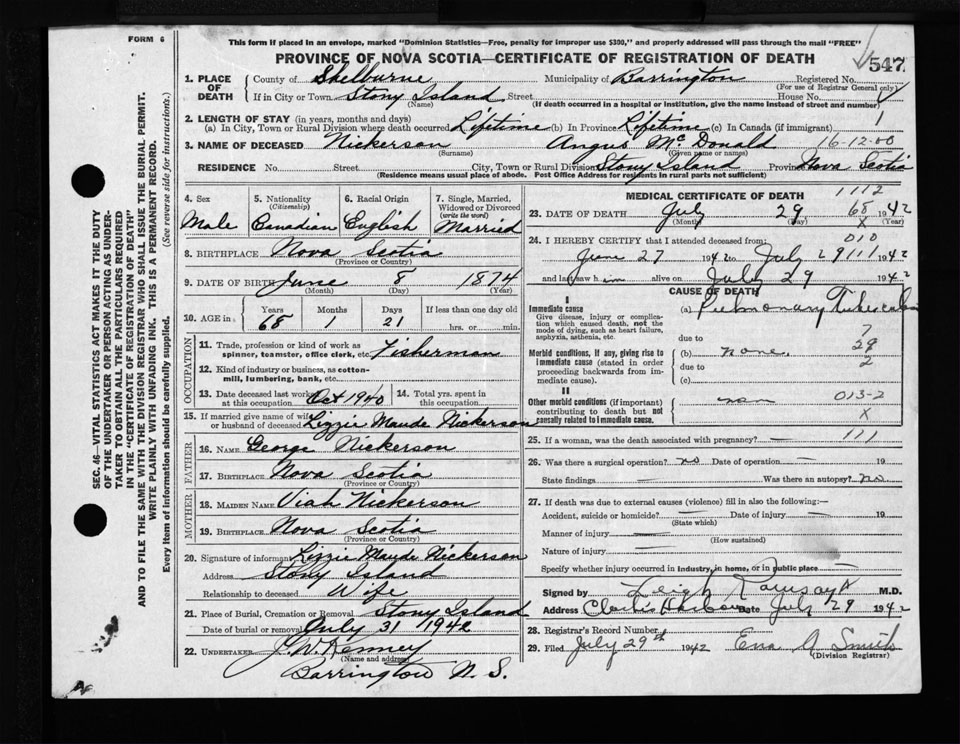 FORM 6
This form if placed in an envelope, marked "Dominion Statistics—Free, penalty for improper use $300," and properly addressed will pass through the mail "FREE"
PROVINCE OF NOVA SCOTIA—CERTIFICATE OF REGISTRATION OF DEATH
547
1. PLACE OF DEATH
County of Shelburne Municipality of Barrington Registered No.
(For use of Registrar General only)
If in City or Town Stony Island Street House No.
(Name) (If death occurred in a hospital or institution, give the name instead of street and number)
2. LENGTH OF STAY (in years, months and days) 1
(a) In City, Town or Rural Division where death occurred Lifetime (b) In Province Lifetime (c) In Canada (if immigrant)
3. NAME OF DECEASED Nickerson Angus McDonald 16-12-00
(Surname) (Given name or names)
RESIDENCE No. Street City, Town or Rural Division Stony Island Province Nova Scotia
(Residence means usual place of abode. Post Office Address for residents in rural parts not sufficient)
4. Sex
Male
5. Nationality (Citizenship)
Canadian
6. Racial Origin
English
7. Single, Married, Widowed or Divorced (write the word)
Married
8. BIRTHPLACE Nova Scotia
(Province or Country)
9. DATE OF BIRTH June 8 1874
(Month) (Day) (Year)
10. AGE in Years Months Days If less than one day old
68 1 21 hrs. or min.
OCCUPATION
11. Trade, profession or kind of work as spinner, teamster, office clerk, etc. Fisherman
12. Kind of industry or business, as cotton-mill, lumbering, bank, etc.
13. Date deceased last worked at this occupation Oct 1940 14. Total yrs. spent in this occupation
15. If married give name of wife or husband of deceased Lizzie Maude Nickerson
FATHER
16. NAME George Nickerson
17. BIRTHPLACE Nova Scotia
(Province or Country)
MOTHER
18. MAIDEN NAME Viah Nickerson
19. BIRTHPLACE Nova Scotia
(Province or Country)
20. Signature of informant Lizzie Maude Nickerson
Address Stony Island
Relationship to deceased Wife
21. Place of Burial, Cremation or Removal Stony Island
Date of burial or removal July 31 1942
22. UNDERTAKER J. W. Kenney
(Name and address)
Barrington N. S.
MEDICAL CERTIFICATE OF DEATH 1112
23. DATE OF DEATH July 29 68 1942
(Month) (Day) X (Year)
24. I HEREBY CERTIFY that I attended deceased from: 010
June 27 1942 to July 29 111 1942
and last saw him alive on July 29 1942
CAUSE OF DEATH
I
Immediate cause
Give disease, injury or complication which caused death, not the mode of dying, such as heart failure, asphyxia, asthenia, etc.
(a) Pulmonary
due to 7
Morbid conditions, if any, giving rise to immediate cause (stated in order proceeding backwards from immediate cause).
(b) none. 29
due to 2
(c)
II
Other morbid conditions (if important) contributing to death but not causally related to immediate cause.
013-2
X
25. If a woman, was the death associated with pregnancy? — 111
26. Was there a surgical operation? no Date of operation — 19
State findings — Was there an autopsy? no
27. If death was due to external causes (violence) fill in also the following:—
Accident, suicide or homicide? — Date of injury — 19
(State which)
Manner of injury —
(How sustained)
Nature of injury —
Specify whether injury occurred in industry, in home, or in public place —
Signed by Leigh Ramsay M.D.
Address Clark's Harbour Date July 29 1942
28. Registrar's Record Number
29. Filed July 29th 1942 Smith
(Division Registrar)
SEC. 46—VITAL STATISTICS ACT MAKES IT THE DUTY
OF THE UNDERTAKER OR PERSON ACTING AS UNDERTAKER
TO OBTAIN ALL THE PARTICULARS REQUIRED
IN THE "CERTIFICATE OF REGISTRATION OF DEATH"
AND TO FILE THE SAME WITH THE DIVISION REGISTRAR WHO SHALL ISSUE THE BURIAL PERMIT.
WRITE PLAINLY WITH UNFADING INK. THIS IS A PERMANENT RECORD.
Every item of information should be carefully supplied. (See reverse side for instructions).